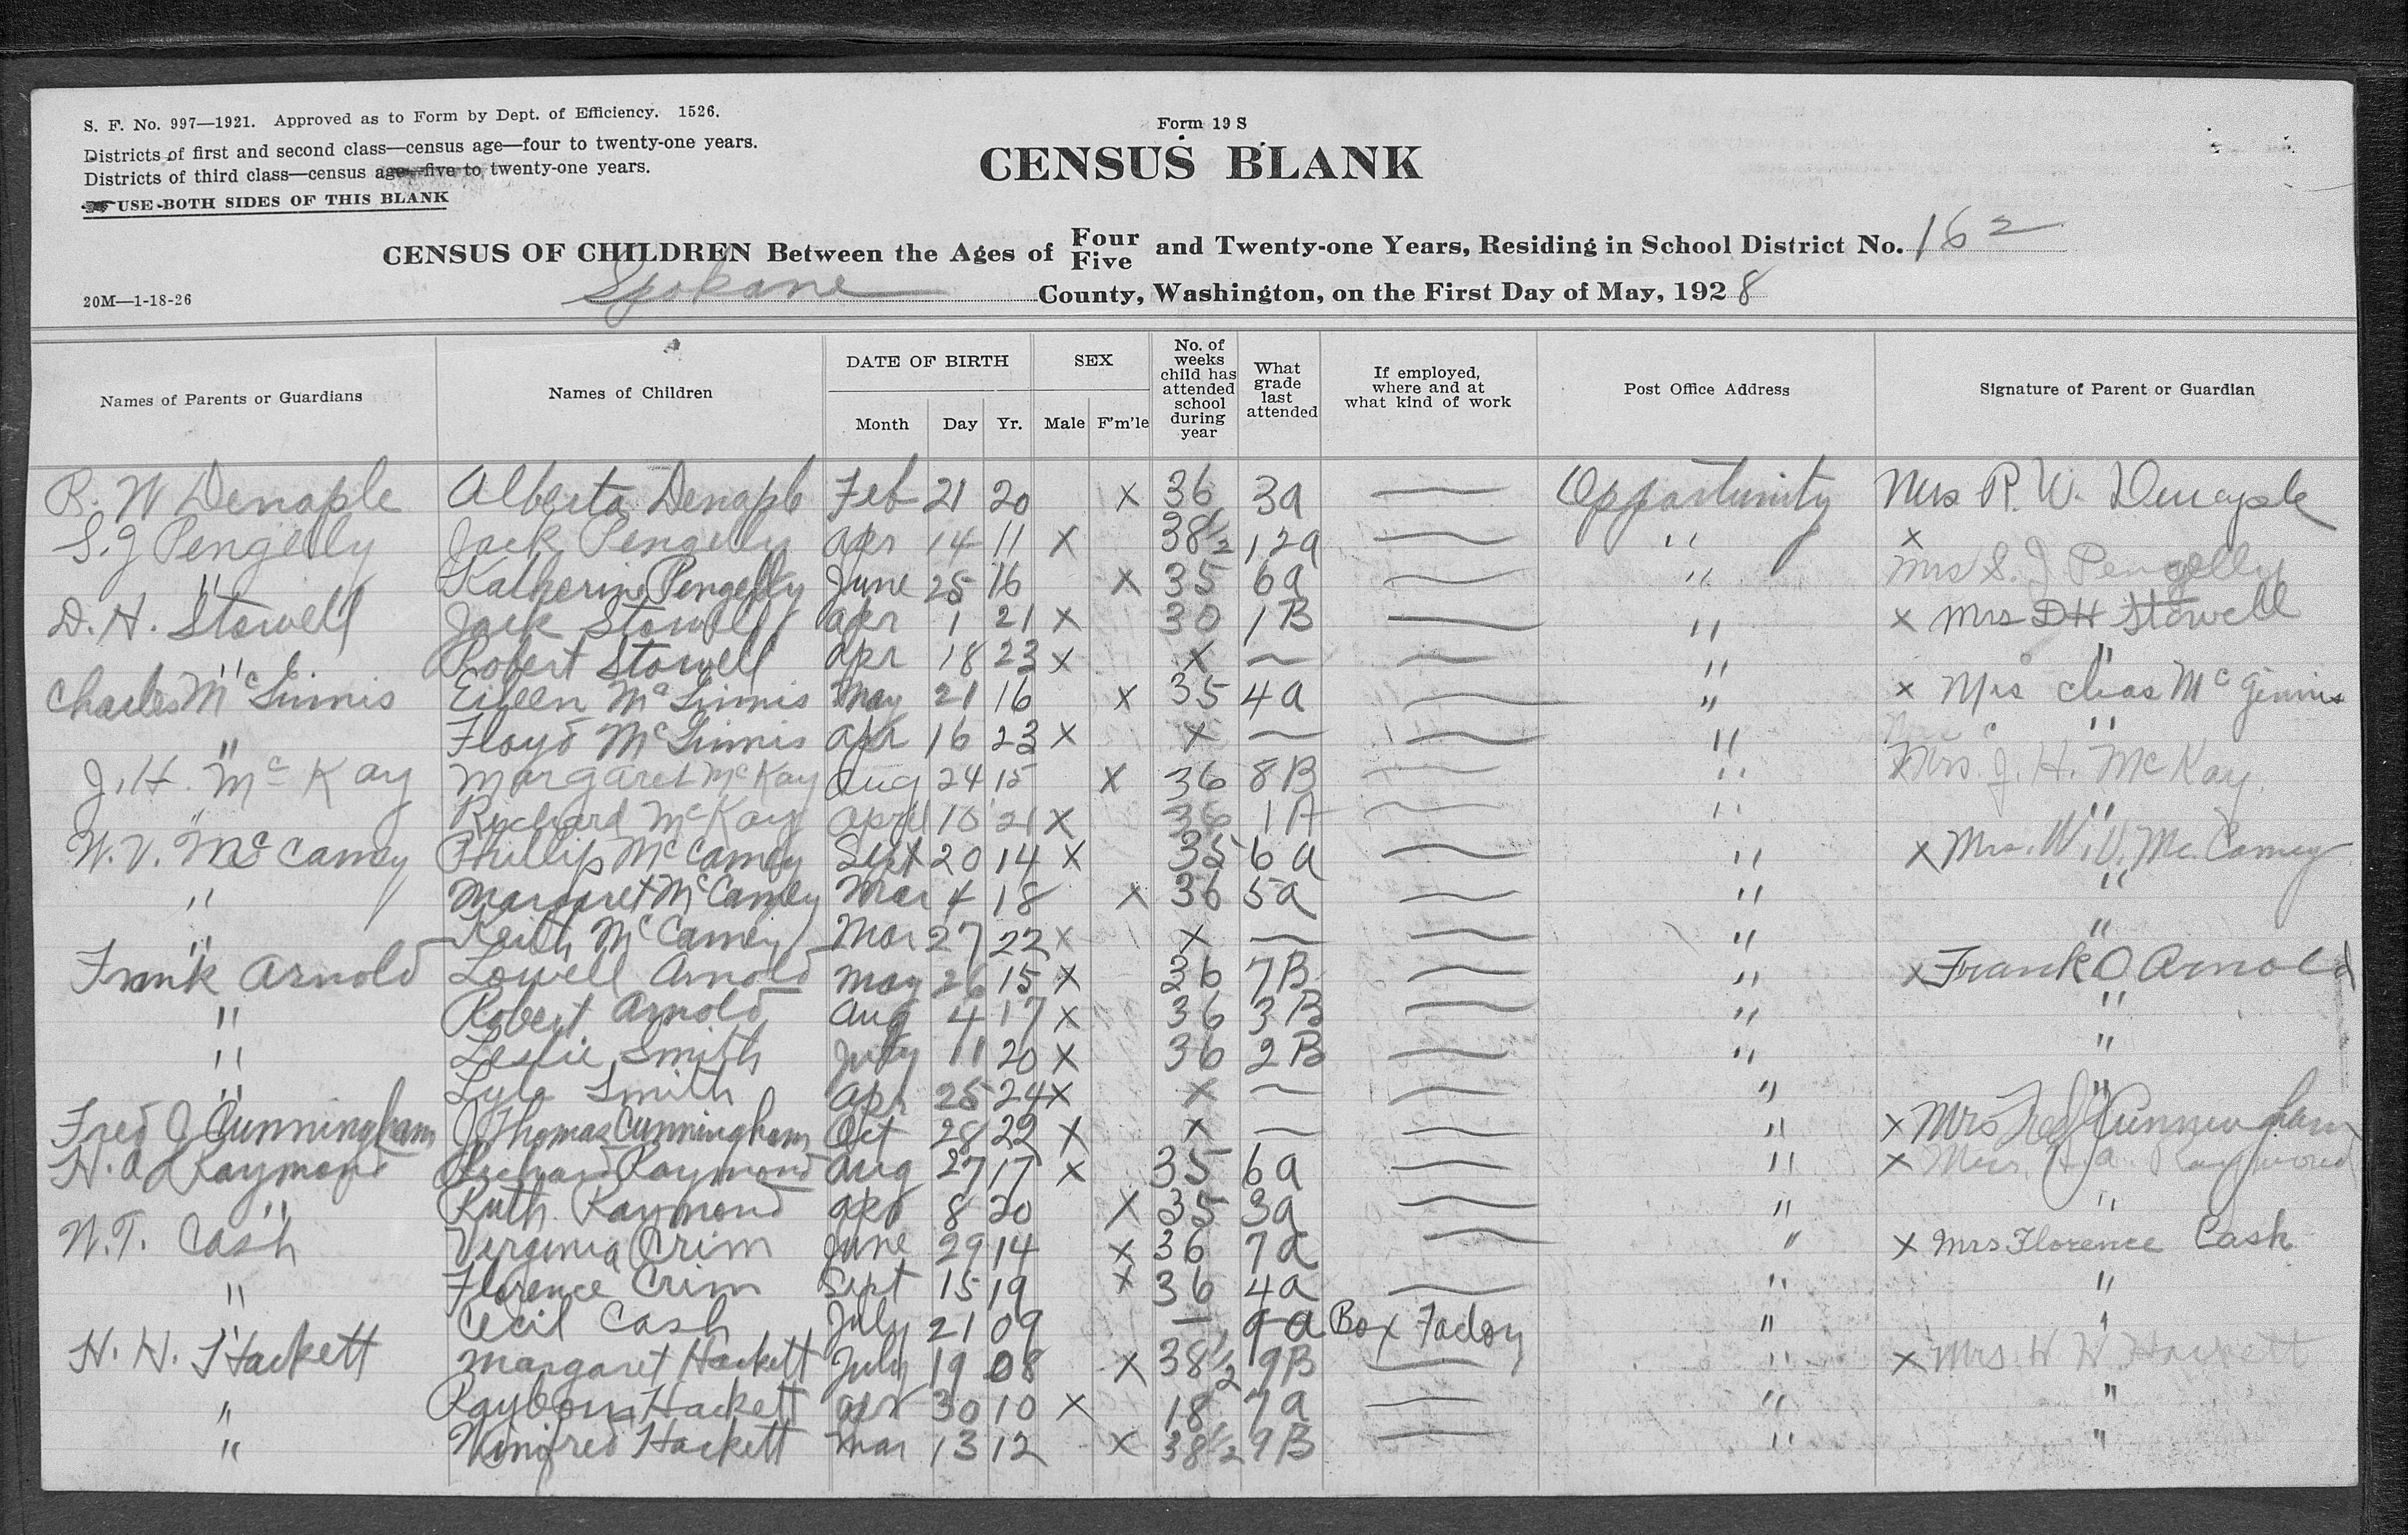 S. F. No. 997—1921. Approved as to Form by Dept. of Efficiency. 1526.
Districts of first and second class—census age—four to twenty-one years.
Districts of third class—census age—five to twenty-one years.
USE BOTH SIDES OF THIS BLANK
Form 19 S
CENSUS BLANK
CENSUS OF CHILDREN Between the Ages of Four Five and Twenty-one Years, Residing in School District No. 162
20M—1-18-26 Spokane County, Washington, on the First Day of May, 1928
Names of Parents or Guardians Names of Children DATE OF BIRTH Month Day Yr. SEX Male F'm'le No. of weeks child has attended school during year What grade last attended If employed, where and at what kind of work Post Office Address Signature of Parent or Guardian
R. W Denaple Alberta Denaple Feb 21 20 x 36 3a — Opportunity Mrs R. W. Denaple
S. J Pengelly Jack Pengelly apr 14 11 x 38 1/2 12a — " x
" Katherine Pengelly June 25 16 x 35 6a — " Mrs S. J Pengelly
D. H. Stowell Jack Stowell apr 1 21 x 30 1B — " x Mrs DH Stowell
" Robert Stowell apr 18 23 x x — — " "
Charles McGinnis Eileen McGinnis May 21 16 x 35 4a — " x Mrs Chas McGinnis
" Floyd McGinnis apr 16 23 x x — — " "
J. H. McKay Margaret McKay Aug 24 15 x 36 8B — " x Mrs. J. H. McKay.
" Richard McKay April 10 21 x 36 1A — " "
W. V. McCamey Phillip McCamey Sept 20 14 x 35 6a — " x Mrs. W. V. McCamey
" Margaret McCamey Mar 4 18 x 36 5a — " "
" Keith McCamey Mar 27 22 x x — — " "
Frank Arnold Lowell Arnold May 26 15 x 36 7B — " x Frank O Arnold
" Robert Arnold Aug 4 17 x 36 3B — " "
" Leslie Smith July 11 20 x 36 2B — " "
" Lyle Smith apr 25 24 x x — — " "
Fred J Cunningham J Thomas Cunningham Oct 28 22 x x — — " x Mrs Fred J Cunningham
H. a Raymond Richard Raymond Aug 27 17 x 35 6a — " x Mrs H. a. Raymond
" Ruth Raymond apr 8 20 x 35 3a — " "
W. T. Cash Virginia Crim June 29 14 x 36 7a — " x Mrs Florence Cash
" Florence Crim Sept 15 19 x 36 4a — " "
" Cecil Cash July 21 09 — 9a Box Factory " "
H. H. Hackett Margaret Hackett July 19 08 x 38 1/2 9B — " x Mrs. H H. Hackett
" Hackett apr 30 10 x 18 7a — " "
" Winifred Hackett Mar 13 12 x 38 1/2 9B — " "